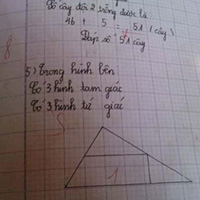 Số cây đội 2 trồng được là
46 + 5 = 51 (cây)
Đáp số 51 cây
8
5) Trong hình bên
Có 3 hình tam giác
Có 3 hình tứ giác
1